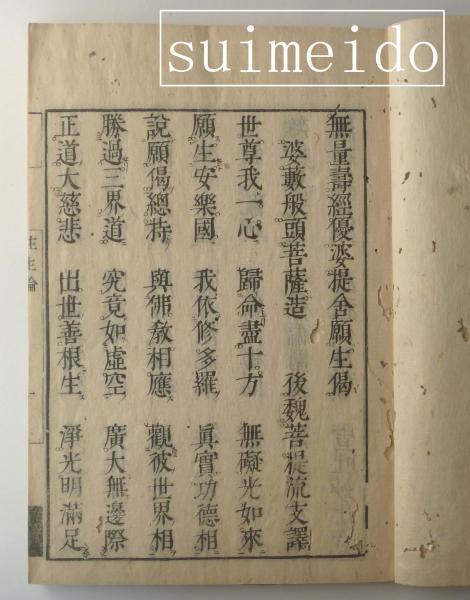 suimeido
無量壽經優婆提舍願生偈
婆藪般頭菩薩造 後魏菩提流支譯
世尊我一心 歸命盡十方 無礙光如來
願生安樂國 我依修多羅 眞實功德相
說願偈總持 與佛敎相應 觀彼世界相
勝過三界道 究竟如虛空 廣大無邊際
正道大慈悲 出世善根生 淨光明滿足
往生論 一